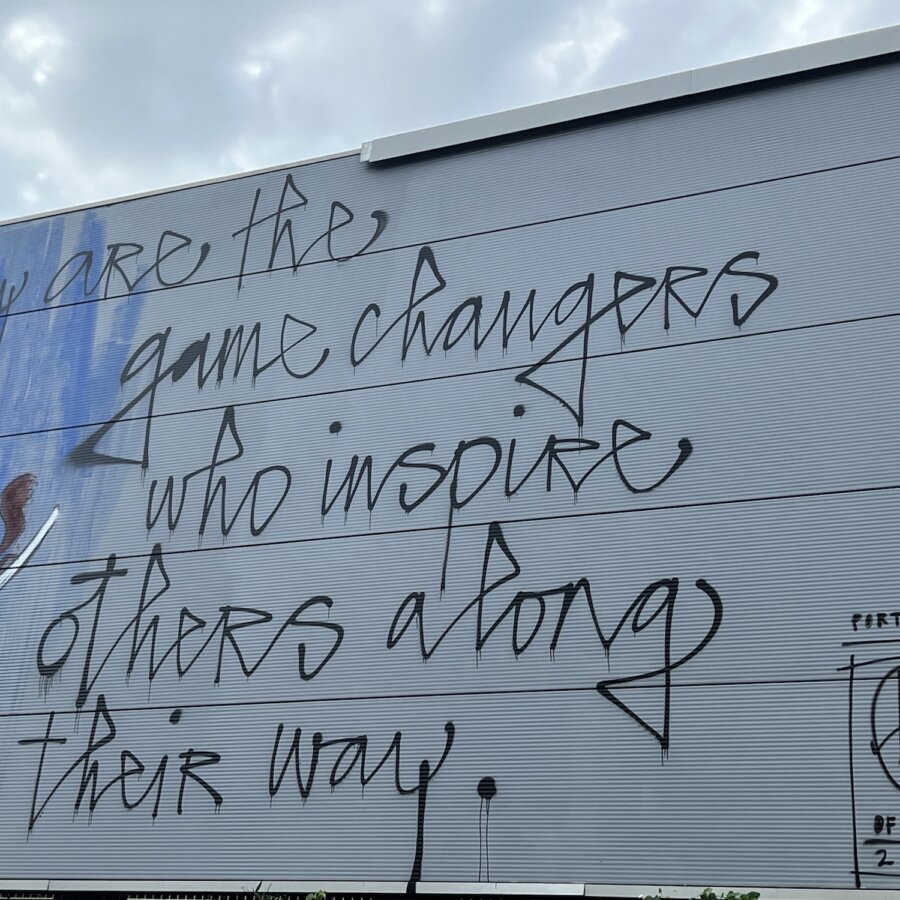 are the
game changers
who inspire
others along
their way.
PORT
OF
2